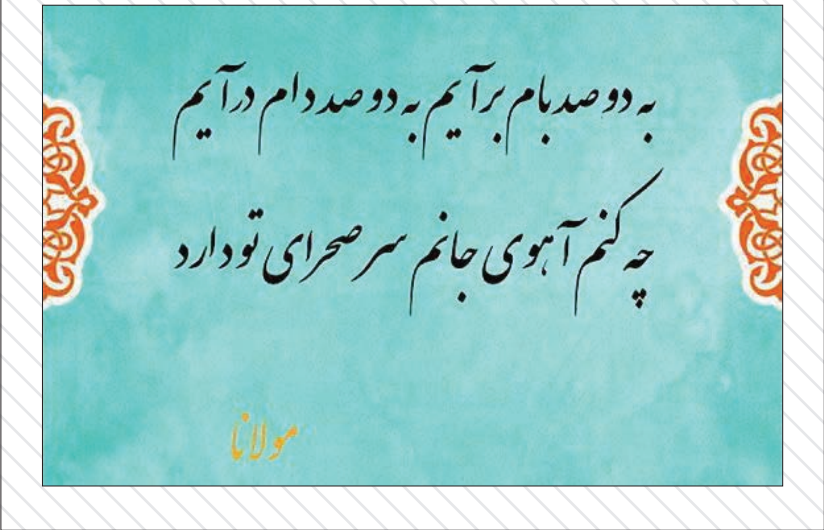 به دو صد بام برآیم به دو صد دام درآیم
چه کنم آهوی جانم سر صحرای تو دارد
مولانا